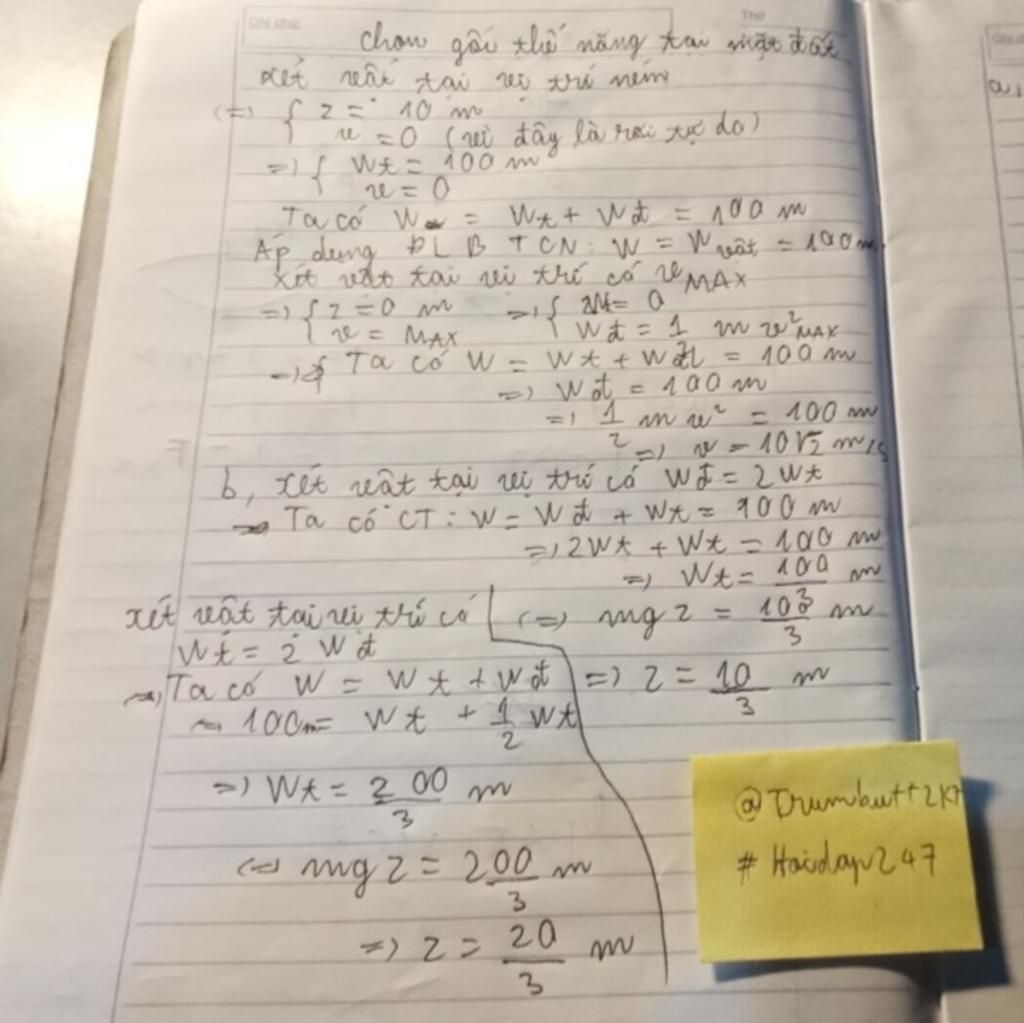 Ghi chú:
Thứ
chọn gốc thế năng tại mặt đất
xét vật tại vị trí ném
(=) { z = 10 m
v = 0 (vì đây là rơi tự do)
=) { Wt = 100 m
v = 0
Ta có W = Wt + Wđ = 100 m
Áp dụng ĐLBTCN: W = W vật = 100 m
Xét vật tại vị trí có vMAX
=) { z = 0 m =) { Wt = 0
v = MAX Wđ = 1/2 m v²MAX
=) Ta có W = Wt + Wđ = 100 m
=) Wđ = 100 m
=) 1/2 m v² = 100 m
=) v = 10√2 m/s
b, xét vật tại vị trí có Wđ = 2Wt
=) Ta có CT: W = Wđ + Wt = 100 m
=) 2Wt + Wt = 100 m
=) Wt = 100/3 m
(=) mgz = 100/3 m
=) z = 10/3 m
xét vật tại vị trí có
Wt = 2 Wđ
=) Ta có W = Wt + Wđ
=) 100m = Wt + 1/2 Wt
=) Wt = 200/3 m
(=) mgz = 200/3 m
=) z = 20/3 m
@Trumbutt2k7
# Hoidap247
a,